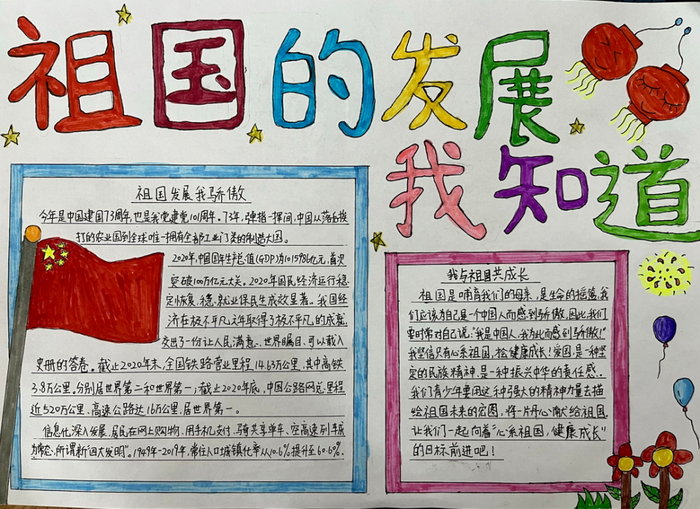 祖国的发展
我知道
祖国发展我骄傲
今年是中国建国73周年,也是我党建党101周年。73年,弹指一挥间,中国从落后挨
打的农业国到全球唯一拥有全部工业门类的制造大国。
2020年,中国国年生产总值(GDP)为1015986亿元,首次
突破100万亿元大关。2020年国民经济运行稳
定恢复,稳就业保民生成效显著。我国经
济在极不平凡之年取得了极不平凡的成靠,
交出了一份让人民满意、世界瞩目,可以载入
史册的答卷。截止2020年末,全国铁路营业里程14.63万公里,其中高铁
3.8万公里,分别居世界第二和世界第一;截止2020年底,中国公路网远里程
近520万公里,高速公路达16万公里,居世界第一。
信息化深入发展,居民在网上购物,用手机支付,骑共享单车,空高速列车
为常态,所谓新"四大发明"。1949年-2019年,常住人口城镇化率从10.6%提升至60.6%.
我与祖国共成长
祖国是哺育我们的母亲,是生命的摇篮,我
们应该为自己是一个中国人而感到骄傲,因此,我们
要时常对自己说:"我是中国人,我为此而感到骄傲!"
我坚信只有心系祖国,才能健康成长!爱国,是一种坚
定的民族精神,是一种振兴中华的责任感,
我们青少年要用这种强大的精神力量去描
绘祖国未来的宏图,将一片丹心献给祖国,
让我们一起向着"心系祖国,健康成长"
的目标前进吧!